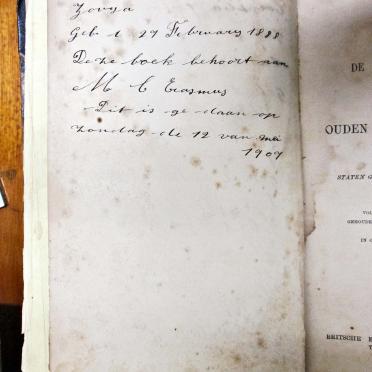 Zovya
Geb t 29 Februarÿ 1888
Deze boek behoort aan
M C Erasmus
Dit is ge daan op
zondag de 12 van mei
1907
DE
OUDEN
STATEN G
VOL
GEHOUDE
IN G
BRITSCHE